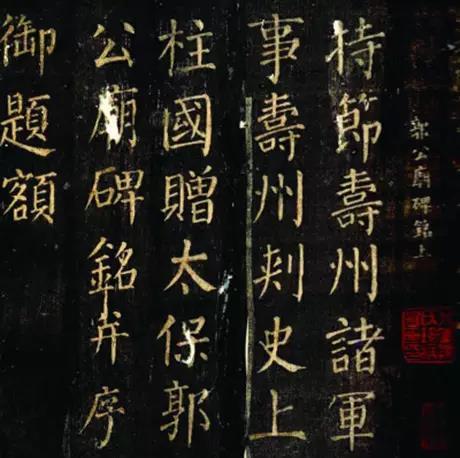 郭公廟碑銘上
持節壽州諸軍
事壽州刾史上
柱國贈太保郭
公廟碑銘并序
御題額